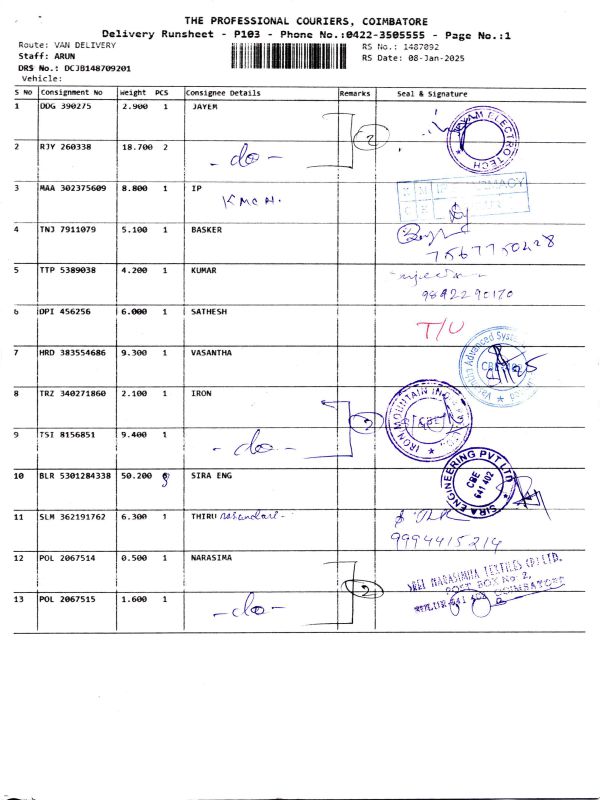 THE PROFESSIONAL COURIERS, COIMBATORE
Delivery Runsheet - P103 - Phone No.:0422-3505555 - Page No.:1
Route: VAN DELIVERY
RS No.: 1487092
Staff: ARUN
RS Date: 08-Jan-2025
DRS No.: DCJB148709201
Vehicle:
S NO Consignment No Weight PCS Consignee Details Remarks Seal & Signature
1 DDG 390275 2.900 1 JAYEM
JAYAM ELECTRO TECH
2 RJY 260338 18.700 2 - do - 2
3 MAA 302375609 8.800 1 IP
KMCH.
4 TNJ 7911079 5.100 1 BASKER
7567750428
5 TTP 5389038 4.200 1 KUMAR
9842290170
6 OPI 456256 6.000 1 SATHESH
T/U
7 HRD 383554686 9.300 1 VASANTHA
8 TRZ 340271860 2.100 1 IRON
IRON MOUNTAIN
CBE
9 TSI 8156851 9.400 1 - do - 2
10 BLR 5301284338 50.200 SIRA ENG
SIRA ENGINEERING PVT LTD
CBE
641 402
11 SLM 362191762 6.300 1 THIRU
9994415214
12 POL 2067514 0.500 1 NARASIMA
SREI NARASIMHA TEXTILES (P) LTD.
POST BOX No. 2,
COIMBATORE
13 POL 2067515 1.600 1 - do - 2